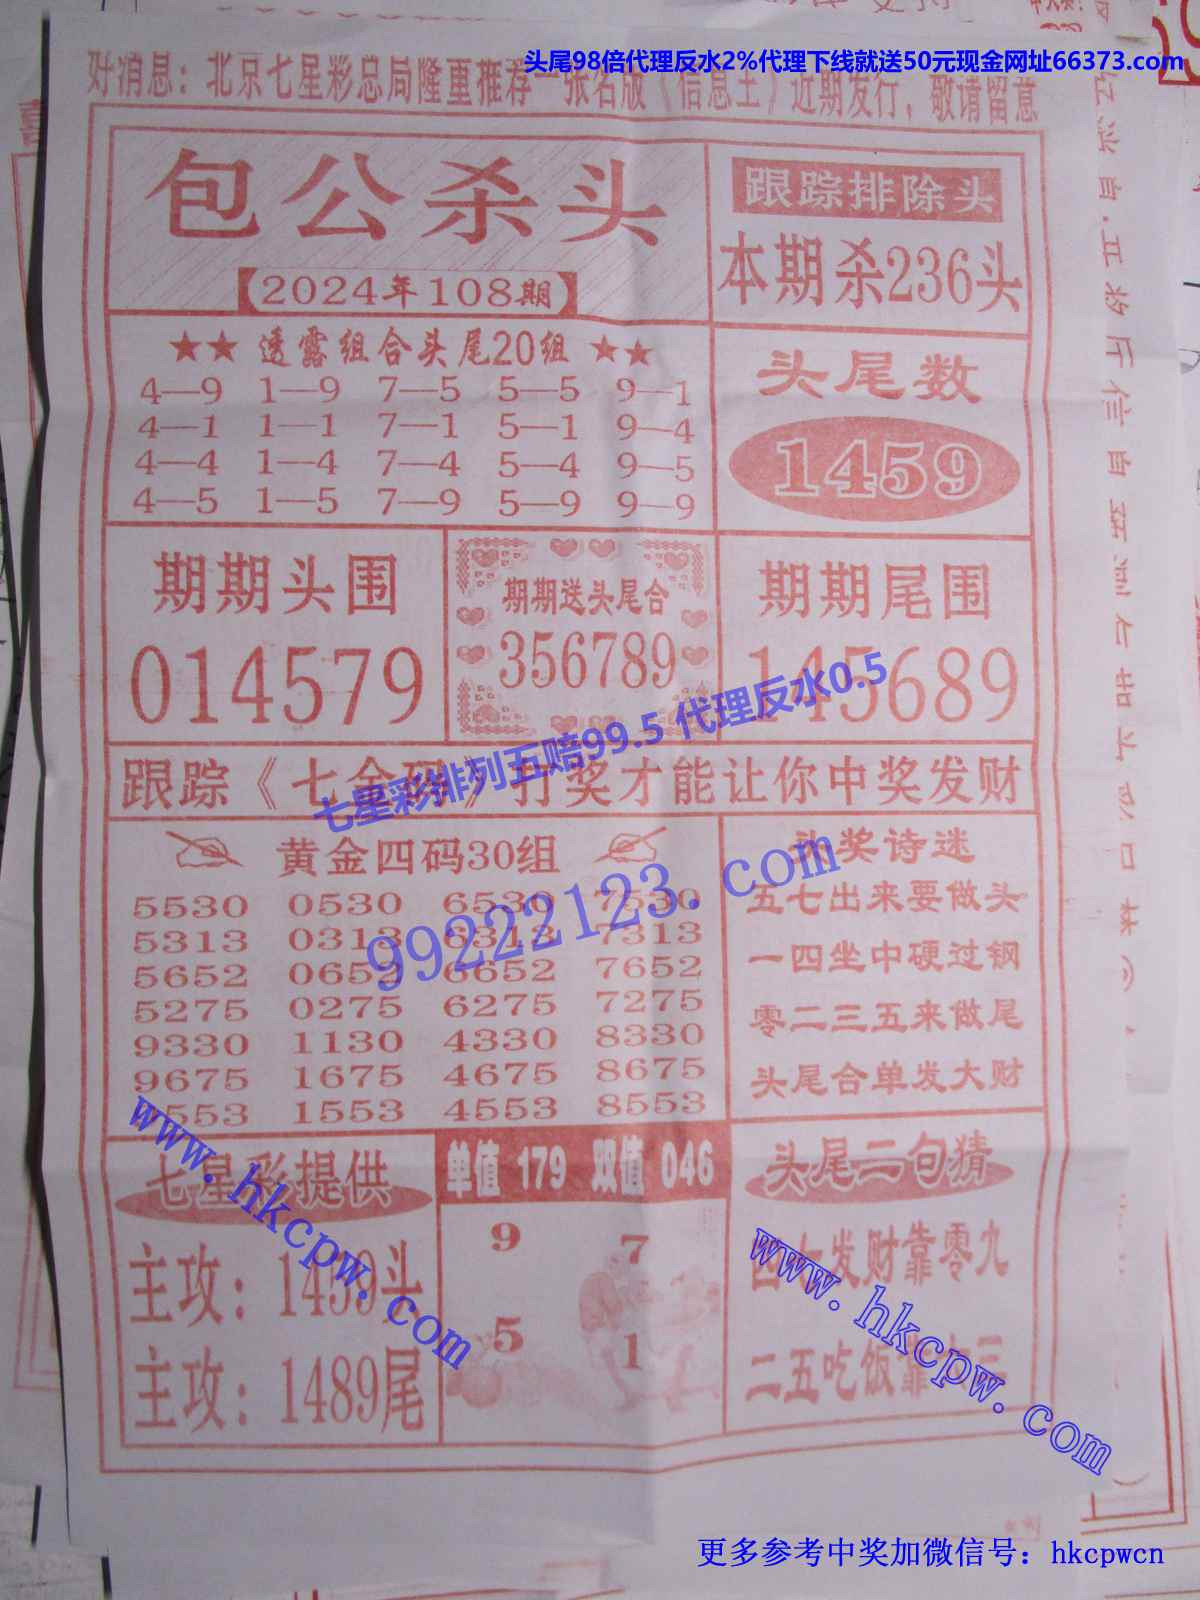 头尾98倍代理反水2%代理下线就送50元现金网址66373.com
好消息：北京七星彩总局隆重推荐一张名版《信息王》近期发行，敬请留意
包公杀头
【2024年108期】
跟踪排除头
本期杀236头
★★ 透露组合头尾20组 ★★
4—9 1—9 7—5 5—5 9—1
4—1 1—1 7—1 5—1 9—4
4—4 1—4 7—4 5—4 9—5
4—5 1—5 7—9 5—9 9—9
头尾数
1459
期期头围
014579
期期送头尾合
356789
期期尾围
145689
七星彩排列五赔99.5 代理反水0.5
跟踪《七金码》打奖才能让你中奖发财
黄金四码30组
5530 0530 6530 7530
5313 0313 6313 7313
5652 0652 6652 7652
5275 0275 6275 7275
9330 1130 4330 8330
9675 1675 4675 8675
553 1553 4553 8553
99222123.com
头奖诗迷
五七出来要做头
一四坐中硬过钢
零二三五来做尾
头尾合单发大财
七星彩提供
主攻：1459头
主攻：1489尾
www.hkcpw.com
单值 179 双值 046
9 7
5 1
头尾二句猜
四七发财靠零九
二五吃饭靠 三
www.hkcpw.com
更多参考中奖加微信号：hkcpwcn